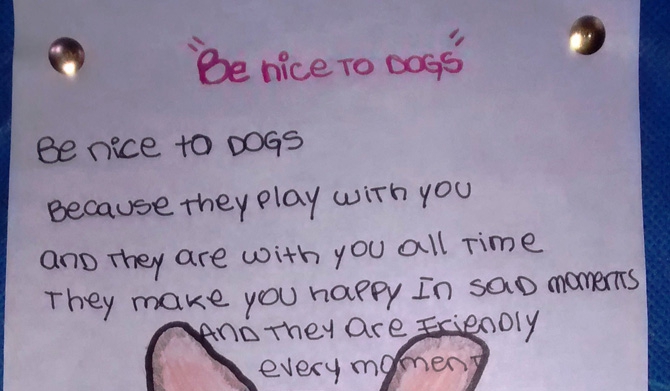 "Be nice To DOGS"
Be nice to DOGS
Because they play with you
and they are with you all Time
They make you happy In sad moments
And They are Friendly
every moment